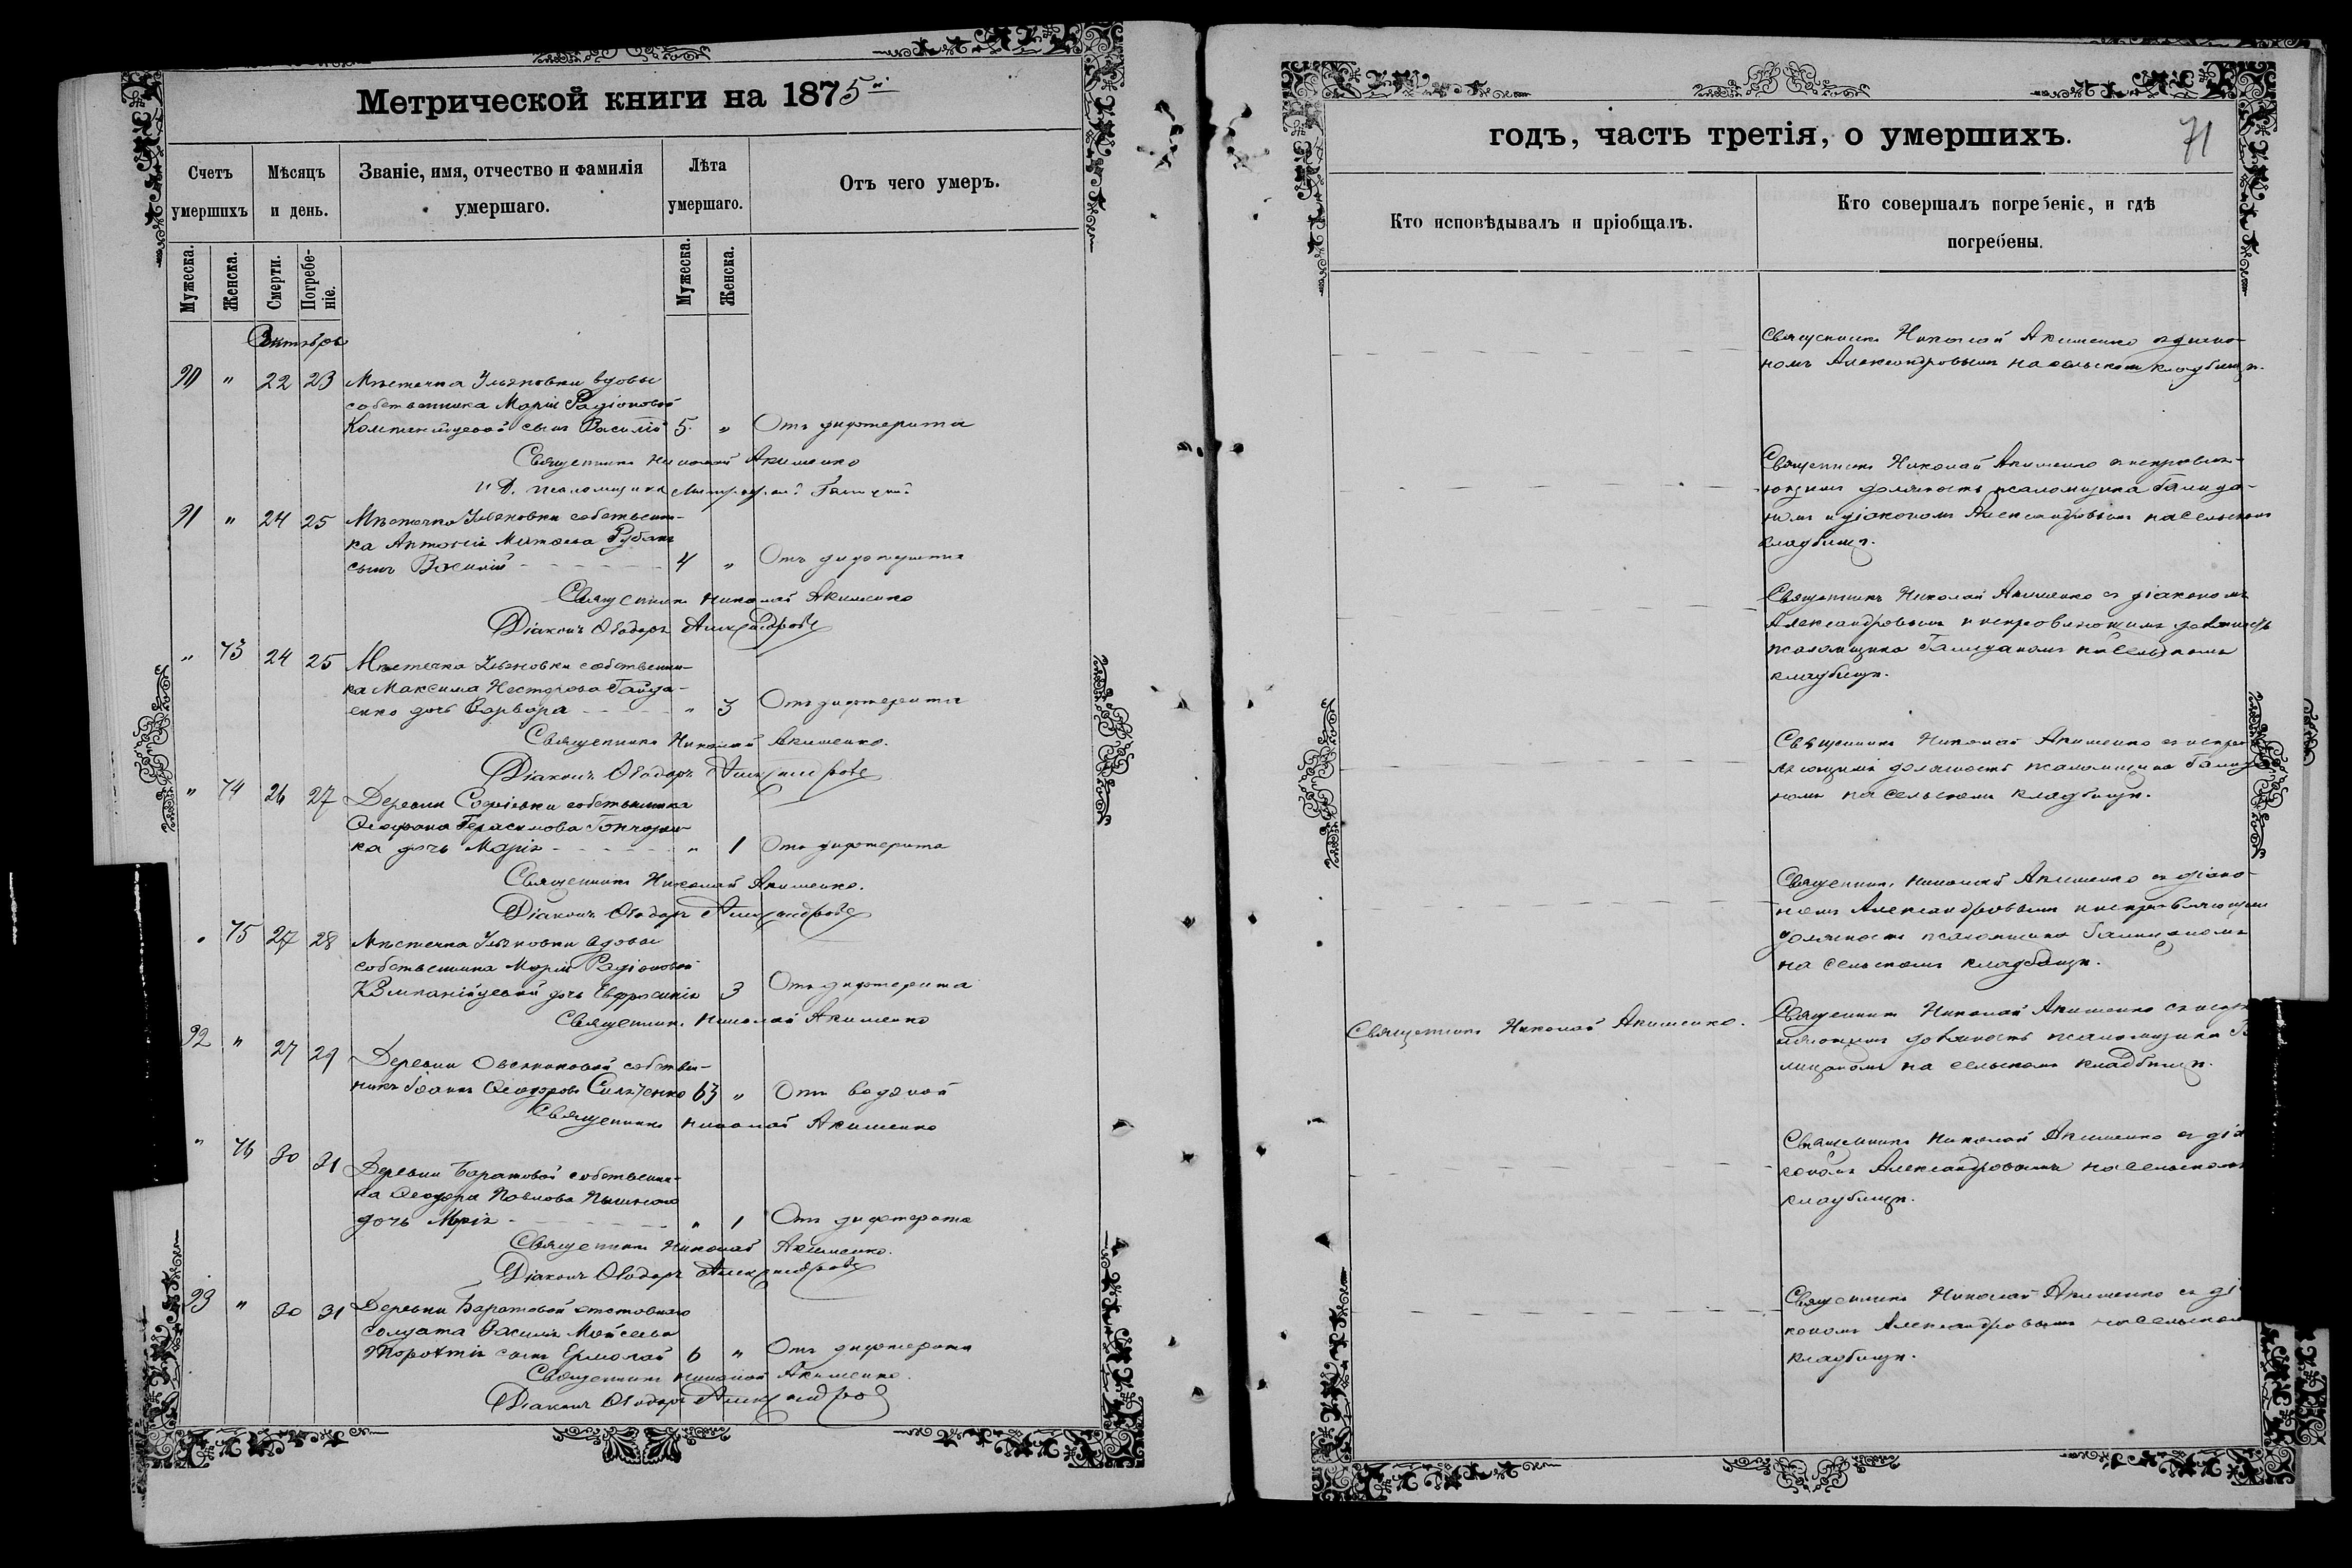 Метрической книги на 1875й
Счетъ умершихъ
Мѣсяцъ и день.
Званіе, имя, отчество и фамилія умершаго.
Лѣта умершаго.
Отъ чего умеръ.
Мужеска.
Женска.
Смерти.
Погребеніе.
Мужеска.
Женска.
Октябрь
90 " 22 23 Мѣстечка Ульяновки вдовы
собственника Маріи Радіоновой
Компанійцевой сынъ Василій 5 " Отъ дифтерита
Священникъ Николай Акименко
И. Д. псаломщика Митрофанъ
91 " 24 25 Мѣстечка Ульяновки собственни-
ка Антонія Матѳеева Рубанъ
сынъ Василій 4 " Отъ дифтерита
Священникъ Николай Акименко
Діаконъ Ѳеодоръ Александровъ
" 73 24 25 Мѣстечка Ульяновки собственни-
ка Максима Несторова Гайда-
енко дочь Варвара " 3 Отъ дифтерита
Священникъ Николай Акименко.
Діаконъ Ѳеодоръ Александровъ
" 74 26 27 Деревни Софіевки собственника
Герасимова Гончарен-
ка дочь Марія " 1 Отъ дифтерита
Священникъ Николай Акименко.
Діаконъ Ѳеодоръ Александровъ
" 75 27 28 Мѣстечка Ульяновки вдовы
собственника Маріи Радіоновой
Компанійцевой дочь Евфросинія 3 Отъ дифтерита
Священникъ Николай Акименко
92 " 27 29 Деревни Овсянниковой собствен-
никъ Іоаннъ Ѳеодоровъ 63 " Отъ водяной
Священникъ Николай Акименко
" 76 30 31 Деревни Баратовой собственни-
ка Ѳеодора Павлова
дочь Марія " 1 Отъ дифтерита
Священникъ Николай Акименко.
Діаконъ Ѳеодоръ Александровъ
93 " 30 31 Деревни Баратовой отставнаго
солдата Василія Мойсеева
сынъ Ермолай 6 " Отъ дифтерита
Священникъ Николай Акименко.
Діаконъ Ѳеодоръ Александровъ
годъ, часть третія, о умершихъ.
71
Кто исповѣдывалъ и пріобщалъ.
Кто совершалъ погребеніе, и гдѣ
погребены.
Священникъ Николай Акименко съ діако-
номъ Александровымъ на сельскомъ кладбищѣ.
Священникъ Николай Акименко съ исправля-
ющимъ должность псаломщика
и діакономъ Александровымъ на сельскомъ
кладбищѣ.
Священникъ Николай Акименко съ діакономъ
Александровымъ и исправляющимъ должность
псаломщика на сельскомъ
кладбищѣ.
Священникъ Николай Акименко съ исправ
ляющимъ должность псаломщика
на сельскомъ кладбищѣ.
Священникъ Николай Акименко съ діако-
номъ Александровымъ и исправляющимъ
должность псаломщика
на сельскомъ кладбищѣ.
Священникъ Николай Акименко.
Священникъ Николай Акименко съ испра
вляющимъ должность псаломщика
на сельскомъ кладбищѣ.
Священникъ Николай Акименко съ діа
кономъ Александровымъ на сельскомъ
кладбищѣ.
Священникъ Николай Акименко съ ді
кономъ Александровымъ на сельском
кладбищѣ.